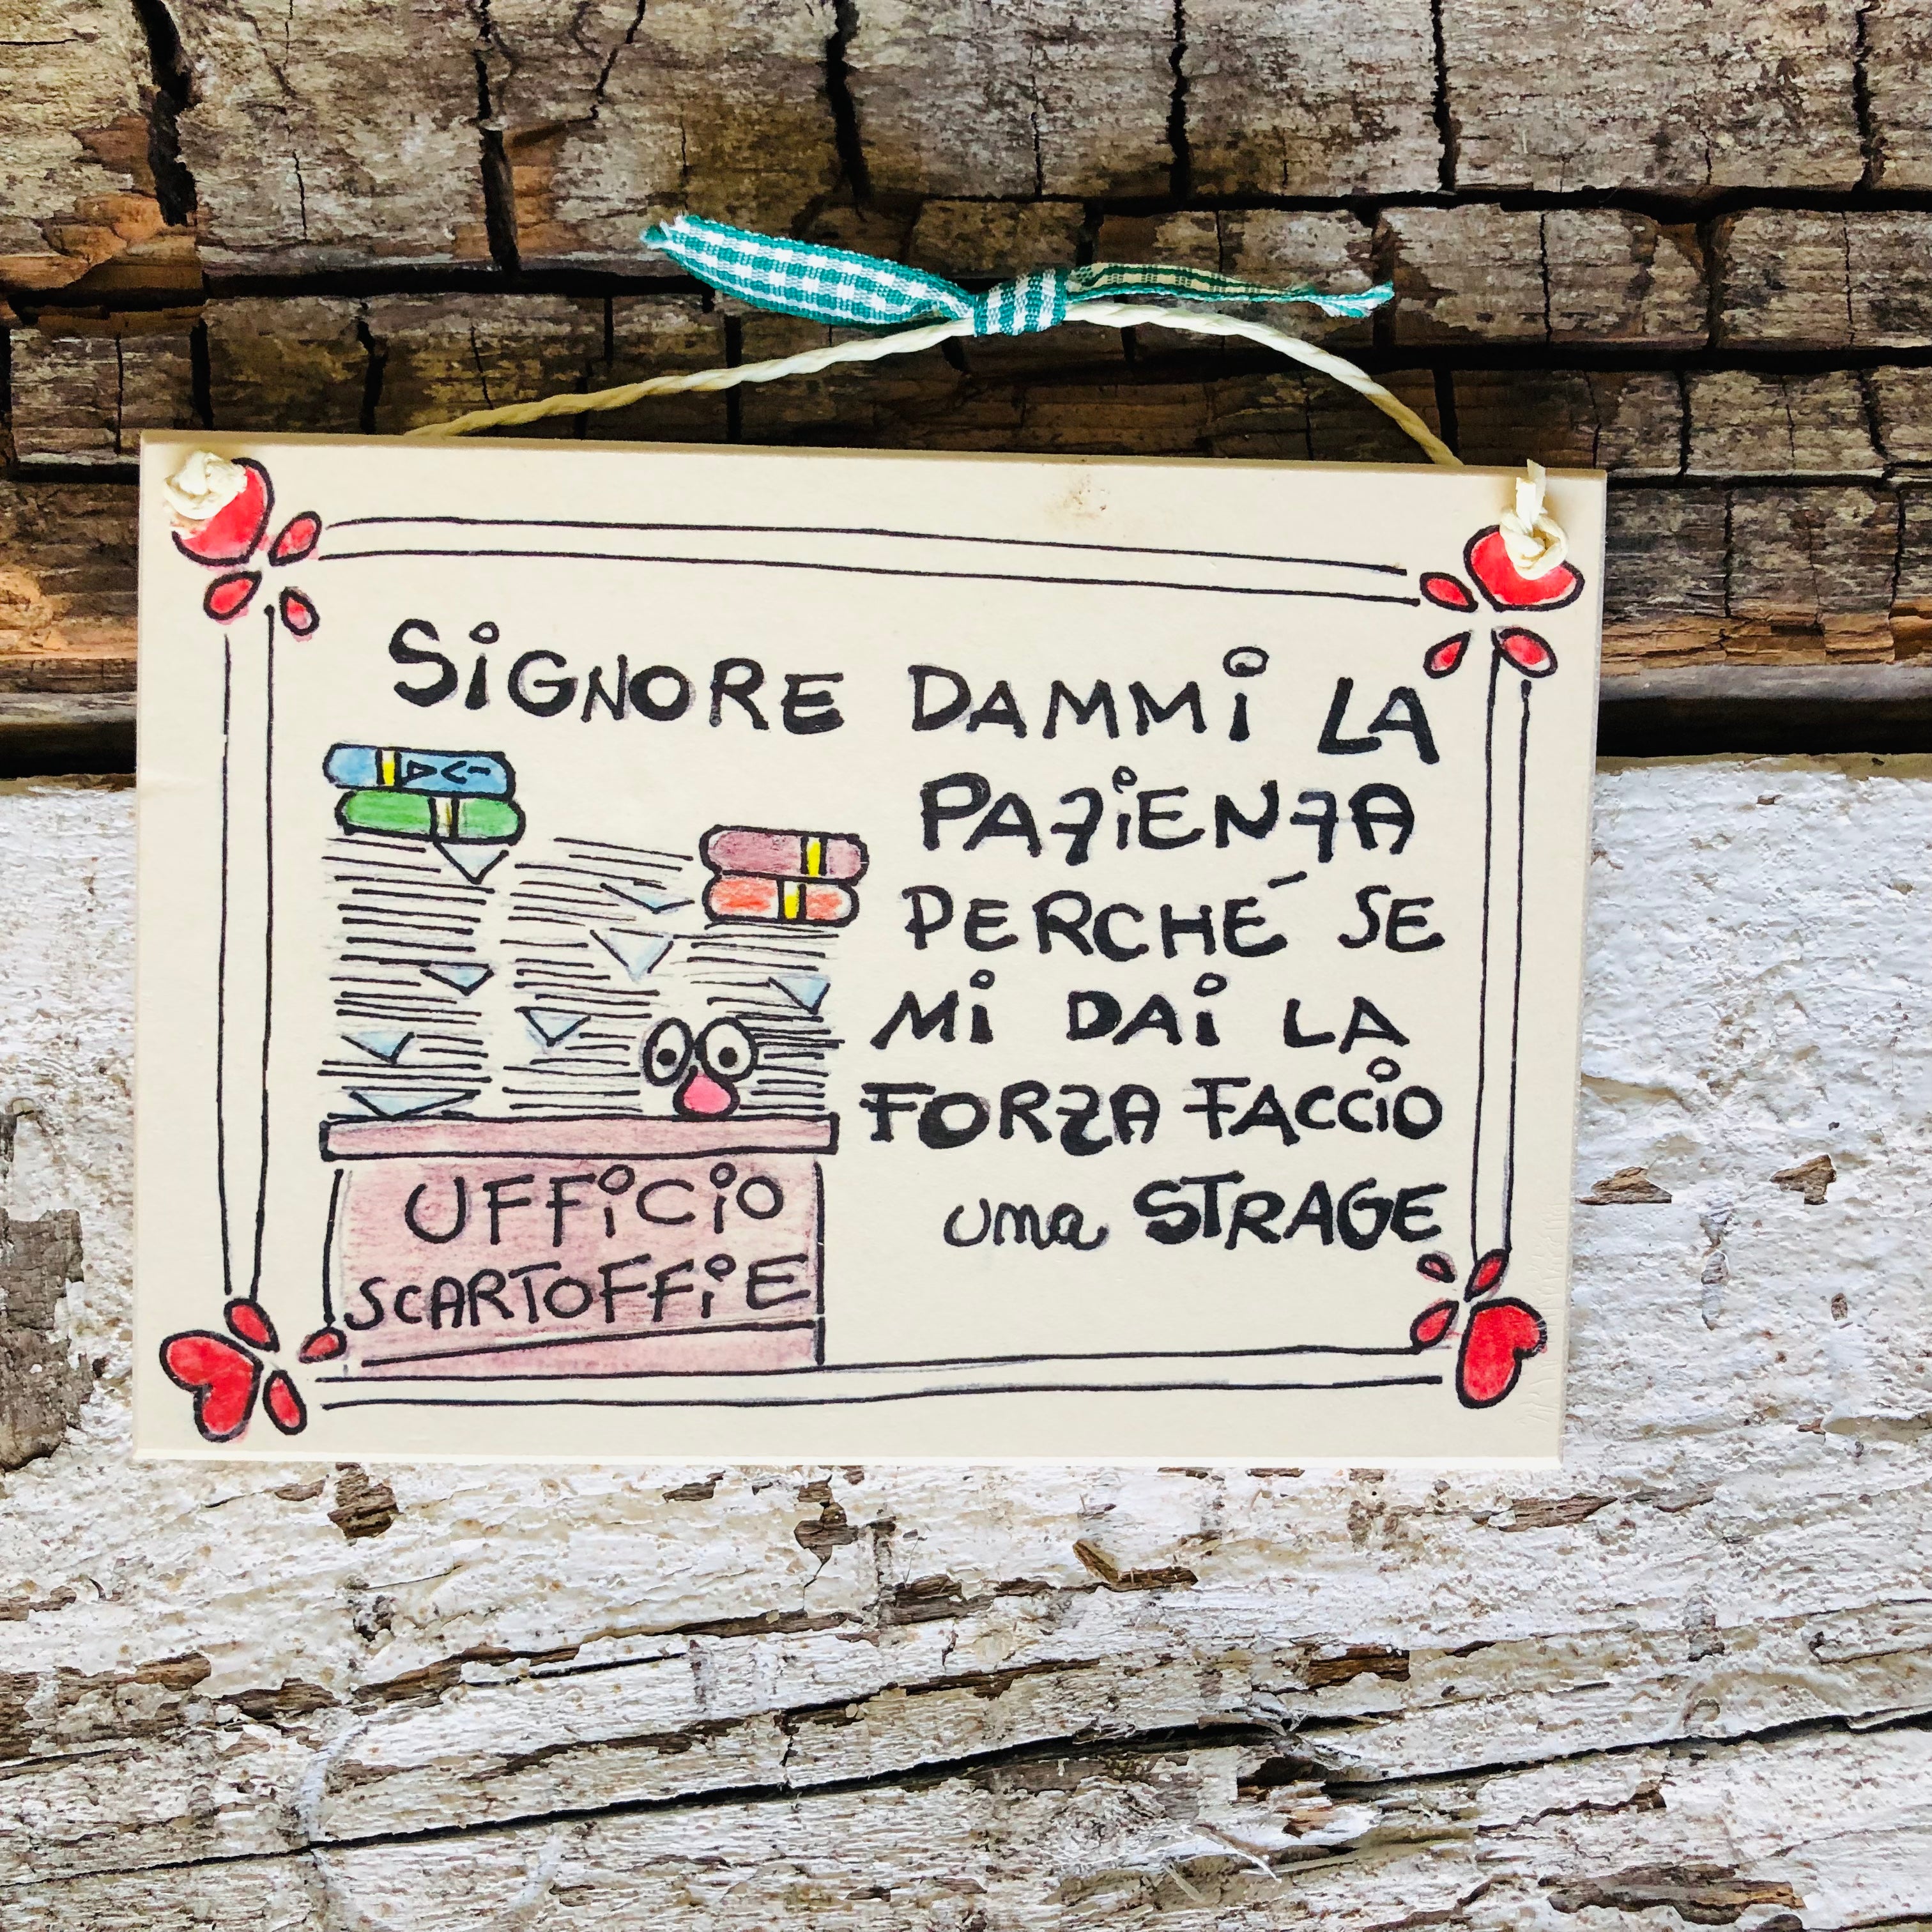 SiGNORE DAMMi LA
PAZiENZA
PERCHÉ SE
Mi DAi LA
FORZA FACCiO
una STRAGE
UFFiCiO
SCARTOFFiE